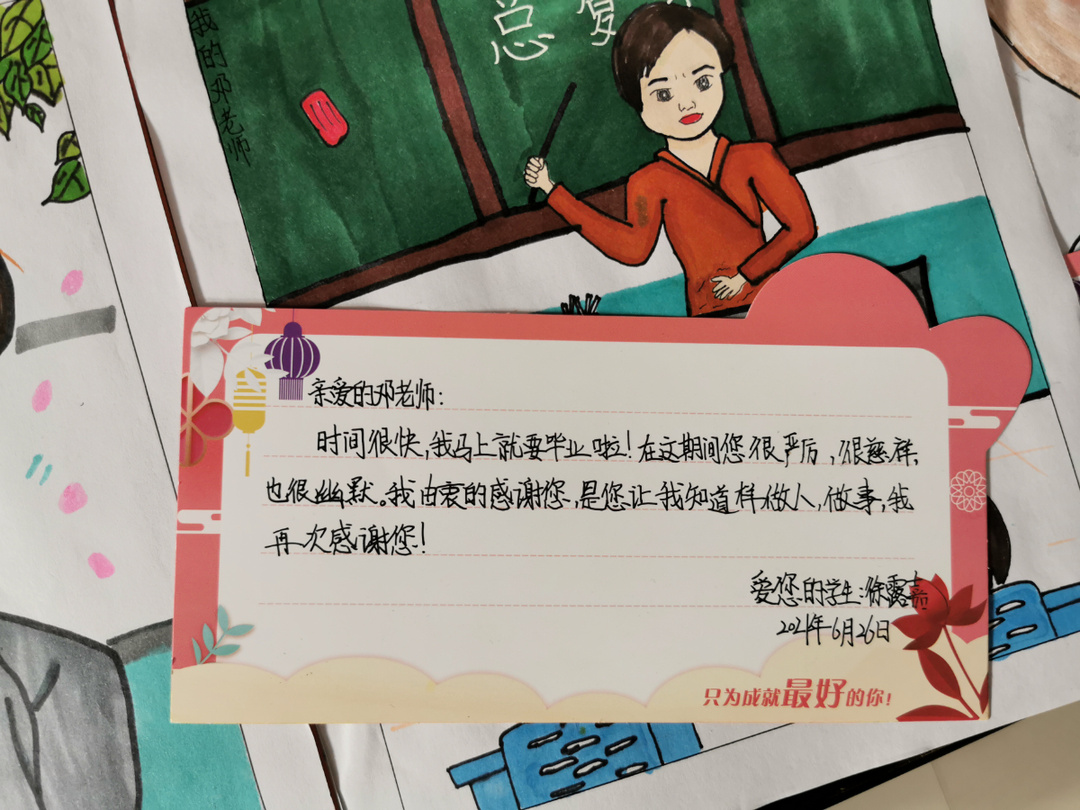 我的邓老师
总复
亲爱的邓老师:
时间很快,我马上就要毕业啦!在这期间您很严厉,很慈祥,
也很幽默。我由衷的感谢您,是您让我知道样做人,做事,我
再次感谢您!
爱您的学生:徐露嘉
2021年6月26日
只为成就最好的你!